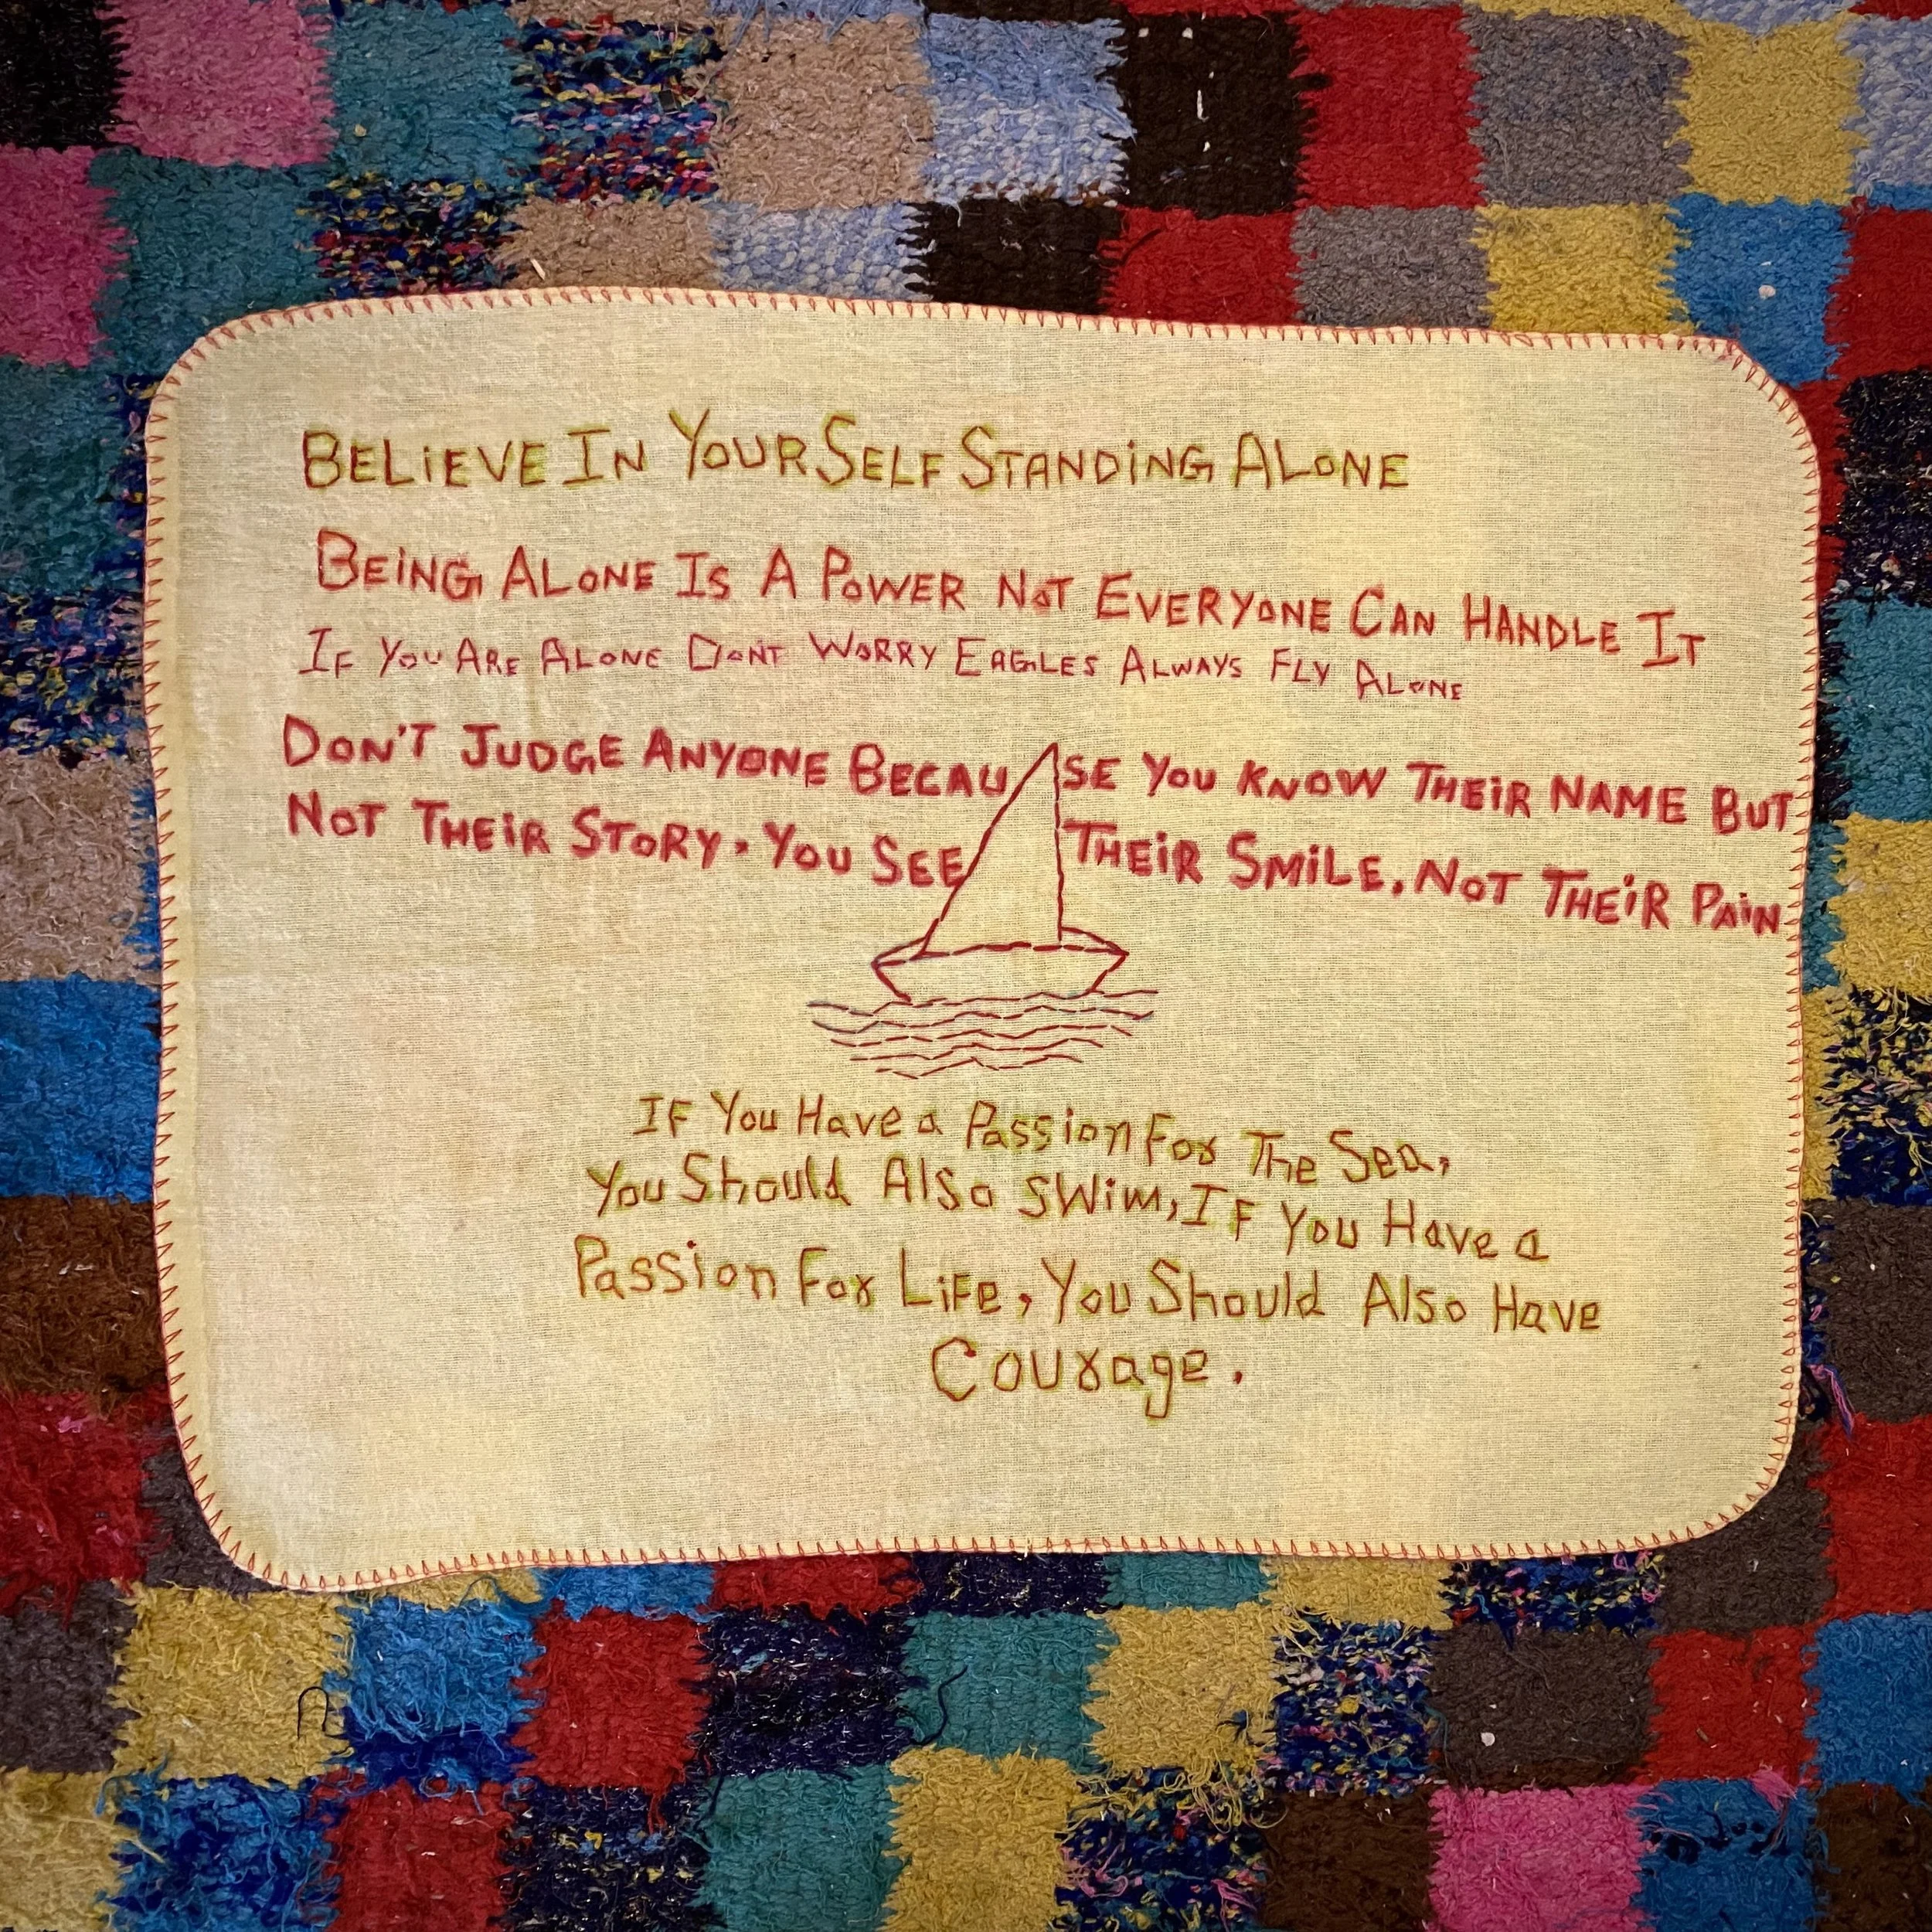 BELiEVE IN YOURSELF STANDiNG ALONE
BEiNG ALONE IS A POWER NOT EVERYONE CAN HANDLE IT
IF YOU ARE ALONE DONT WORRY EAGLES ALWAYS FLY ALONE
DON'T JUDGE ANYONE BECAUSE YOU KNOW THEiR NAME BUT
NOT THEiR STORY. YOU SEE THEiR SMiLE. NOT THEiR PAiN
IF You Have a Passion For The Sea,
You Should Also SWim, IF You Have a
Passion For LiFe, You Should Also Have
Courage.